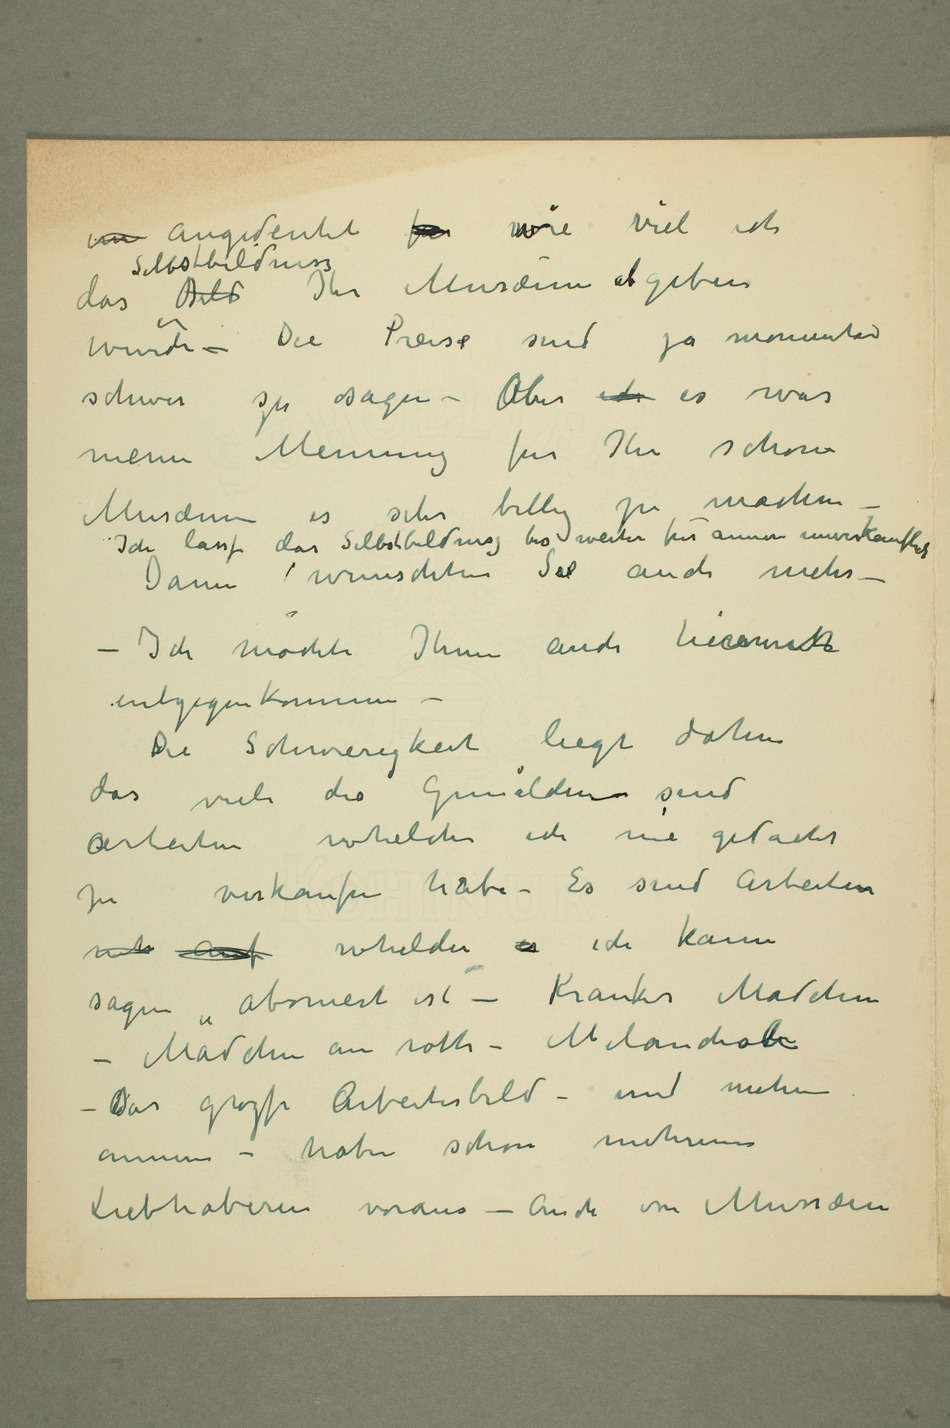 im angedeutet für wie viel ich
Selbstbildniss
das Bild Ihr Musæum abgeben
würde – Die Preise sind ja momentan
schwer zu sagen – Aber ich es war
meine Meinung für Ihr schöne
Musæum es sehr billig zu machen –
Ich lasse das Selbstbildniss bis weiter für annen unverkauflich
Dann wünschten Sie auch mehr –
– Ich möchte Ihnen auch hiermit
entgegenkommen –
Die Schwierigkeit liegt dahin
das viele die Gemälden sind
arbeiten whelche ich nie gedacht
zu verkaufen habe – Es sind Arbeiten
auf whelche es ich kann
sagen „aboniert ist – Krankes Mädchen
– Mädchen am rothe – Melancholie
– Das grosse Arbeiterbild – und mehre
annere – haben schon mehrere
Liebhaberen voraus – Auch von Musæen